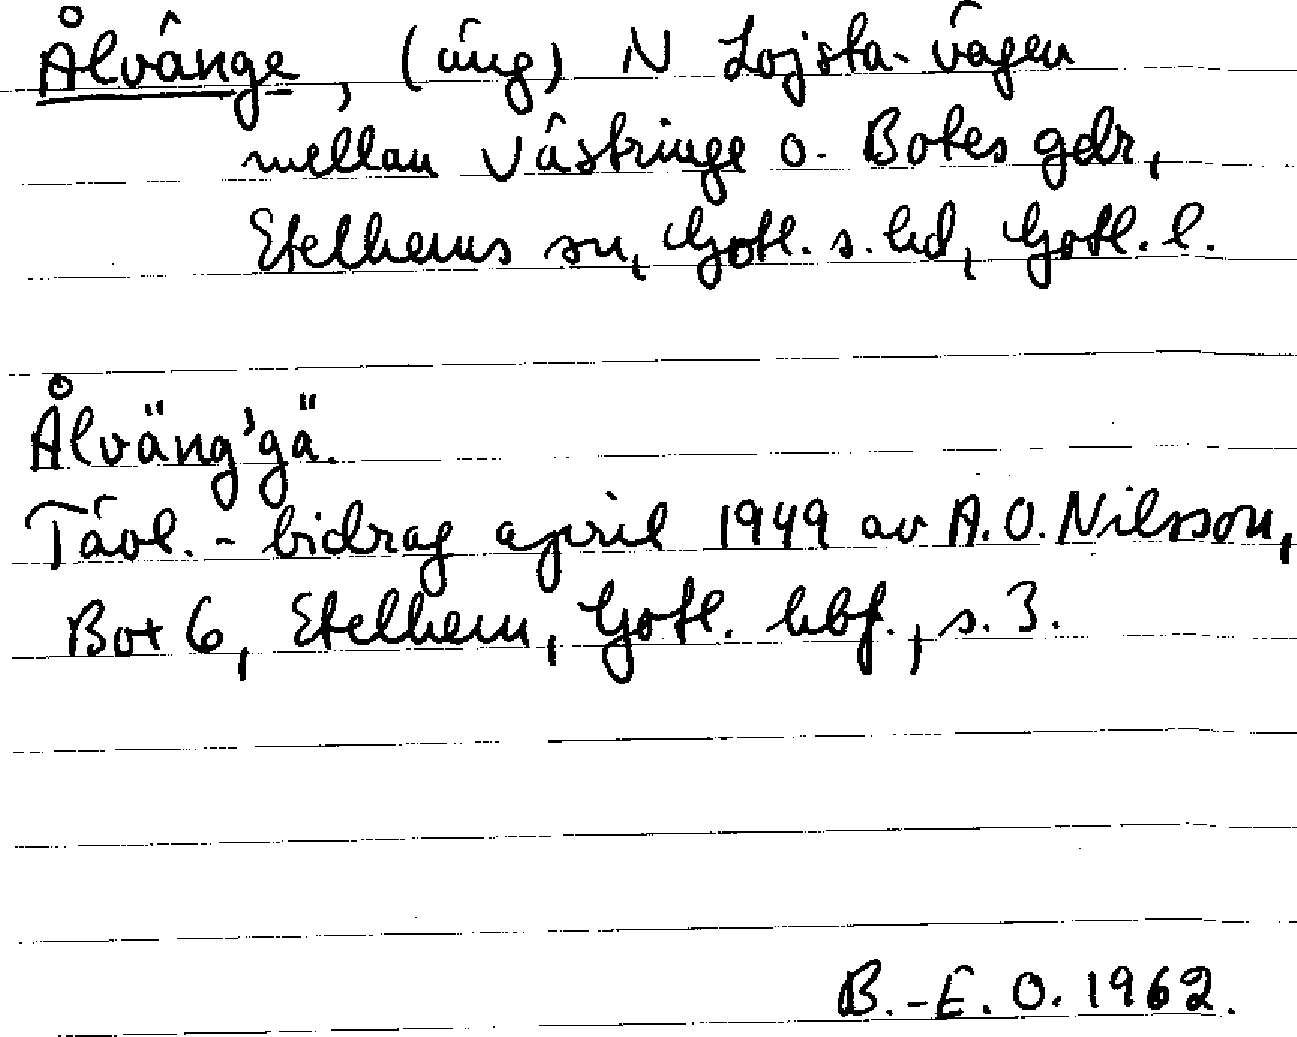 Ålvänge, (äng) N Lojsta-vägen
mellan Västringe o. Botes gdr,
Etelhems sn, Gotl. s. hd, Gotl. l.
Ålväng'gä.
Tävl.-bidrag april 1949 av A.O. Nilsson,
Bot 6, Etelhem, Gotl. hbf., s. 3.
B.-E. O. 1962.